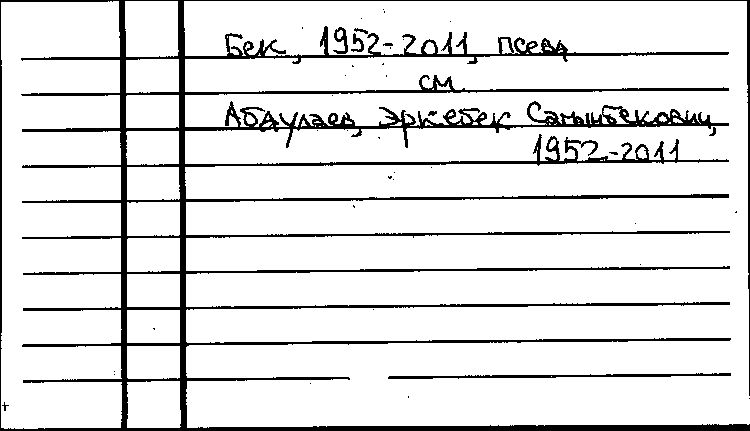 Бек, 1952-2011, псевд
см.
Абдулаев, Эркебек Сагынбекович,
1952-2011